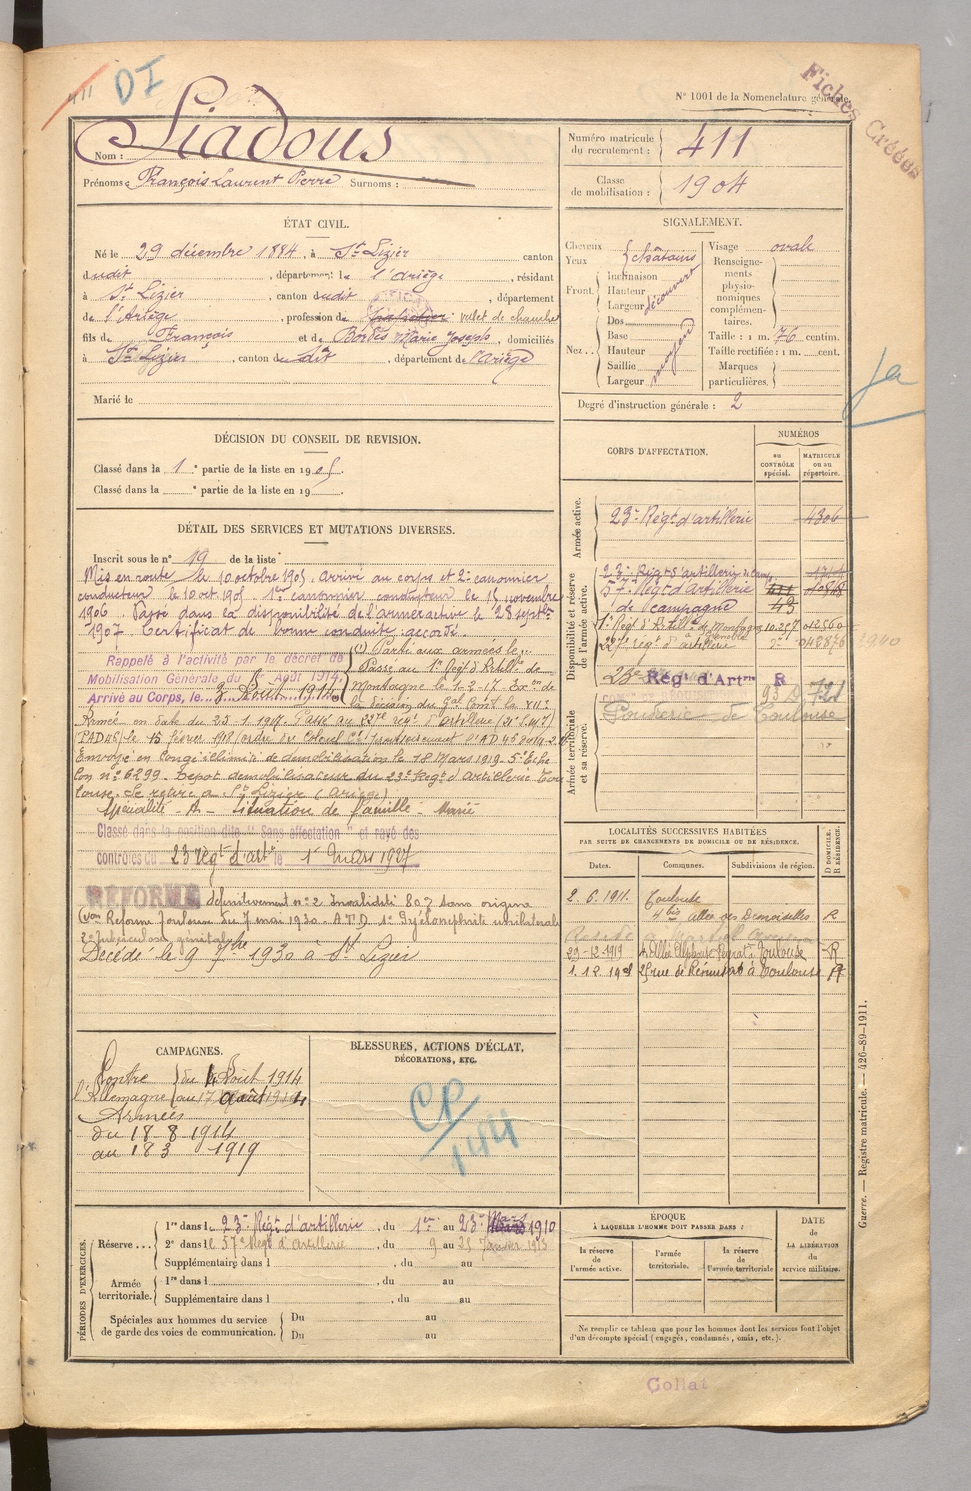 411
DI
N° 1001 de la Nomenclature générale.
Fiches Créées
Nom : Siadous
Prénoms : François Laurent Pierre Surnoms :
Numéro matricule du recrutement : 411
Classe de mobilisation : 1904
ÉTAT CIVIL.
Né le 29 décembre 1884, à St Lizier canton
dudit, département de l'Ariège, résidant
à St Lizier, canton dudit, département
de l'Ariège, profession de valet de chambre
fils de François et de Bordes Marie Joseph, domiciliés
à St Lizier, canton dudit, département de l'Ariège
Marié le
SIGNALEMENT.
Cheveux
Yeux
châtains
Front.
Inclinaison
Hauteur
Largeur
découvert
Nez...
Dos
Base
Hauteur
Saillie
Largeur
moyen
Visage ovale
Renseignements physionomiques complémentaires.
Taille : 1 m. 76 centim.
Taille rectifiée : 1 m. cent.
Marques particulières.
Degré d'instruction générale : 2
DÉCISION DU CONSEIL DE REVISION.
Classé dans la 1e partie de la liste en 1905.
Classé dans la e partie de la liste en 19
DÉTAIL DES SERVICES ET MUTATIONS DIVERSES.
Inscrit sous le n° 19 de la liste
Mis en route le 10 octobre 1905, arrivé au corps et 2e canonnier
conducteur le 10 oct. 1905. 1er canonnier conducteur le 15 novembre
1906. Passé dans la disponibilité de l'armée active le 28 septbre
1907. Certificat de bonne conduite accordé.
Rappelé à l'activité par le décret de
Mobilisation Générale du 1er Août 1914.
Arrivé au Corps, le 3 Août 1914
(1) Parti aux armées le
Passé au 1er Régt d'Artillie de
Montagne le 1-2-17. Exon de
la décision du Gal Comt la XVIIe
Armée en date du 23-1-1917. Passé au 227e régt d'artillerie
le 15 février 1918
Envoyé en congé illimité de démobilisation le 18 Mars 1919 5e Eche
lon n° 6299. Dépôt démobilisateur du 23e Régt d'Artillerie Tou
louse. Se retire à St Lizier (Ariège)
Spécialité A - Situation de famille - Marié
Classé dans la position dite "Sans affectation" et rayé des
contrôles du 23 régt d'artie le 1er mars 1927
RÉFORMÉ définitivement n° 2 Invalidité 80% sans origine
Con Réforme Toulouse du 7 mai 1930. A.T.D. 1° Pyélonéphrite unilatérale
2° tuberculose génitale
Décédé le 9 7bre 1930 à St Lizier
CORPS D'AFFECTATION.
NUMÉROS
au CONTRÔLE spécial.
MATRICULE ou au répertoire.
Armée active.
23e Régt d'artillerie 4306
Disponibilité et réserve de l'armée active.
23e Régt d'artillerie de camp.
57e Régt d'Artillerie 411
de campagne 43
1er Régt d'Artillie de Montagne 10.257 012560
Grenoble
227e régt d'artillerie 042876
23e Régt d'Artrie R
93 D 721
Armée territoriale et sa réserve.
Poudrerie de Toulouse
LOCALITÉS SUCCESSIVES HABITÉES
PAR SUITE DE CHANGEMENTS DE DOMICILE OU DE RÉSIDENCE.
Dates. Communes. Subdivisions de région.
D DOMICILE. R RÉSIDENCE.
2.6.1911. Toulouse
4 bis allée des Demoiselles R
29-12-1919 Allée Alphonse Peyrat Toulouse R
25 rue de Rémusat à Toulouse R
CAMPAGNES.
Contre l'Allemagne
du 4 Août 1914
au 17 août 1914
Armées
du 18 8 1914
au 18 3 1919
BLESSURES, ACTIONS D'ÉCLAT,
DÉCORATIONS, ETC.
CP
144
PÉRIODES D'EXERCICES.
Réserve...
1re dans le 23e Régt d'artillerie, du 1er au 23 Mars 1910
2e dans le 57e Régt d'Artillerie, du 9 au 25 Janvier 1913
Supplémentaire dans l , du au
Armée territoriale.
1re dans l , du au
Supplémentaire dans l , du au
Spéciales aux hommes du service de garde des voies de communication.
Du au
Du au
ÉPOQUE
À LAQUELLE L'HOMME DOIT PASSER DANS :
la réserve de l'armée active.
l'armée territoriale.
la réserve de l'armée territoriale
DATE
de
LA LIBÉRATION
du
service militaire.
Ne remplir ce tableau que pour les hommes dont les services font l'objet
d'un décompte spécial (engagés, condamnés, omis, etc.).
Guerre. — Registre matricule. — 426-89-1911.
Collat